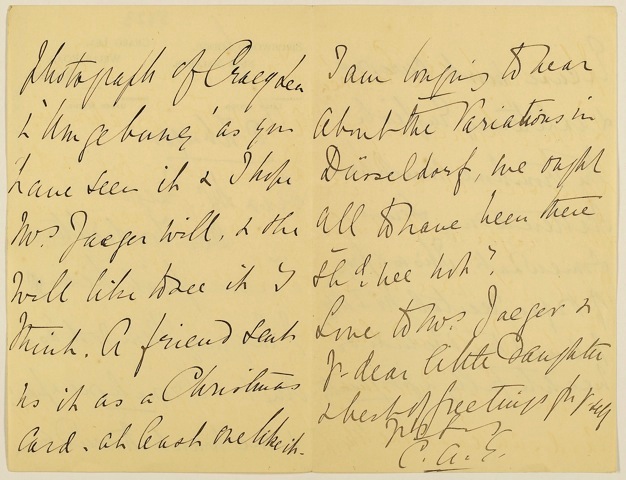 photograph of Craeg Lea
& 'Umgebung' as you
have seen it & I hope
Mrs. Jaeger will, & she
will like to see it I
think. A friend sent
us it as a Christmas
card - at least one like it -
I am longing to hear
about the Variations in
Düsseldorf, we ought
all to have been there
shd. we not?
Love to Mrs. Jaeger &
yr dear little daughter
& best of greetings for
C. A. E.